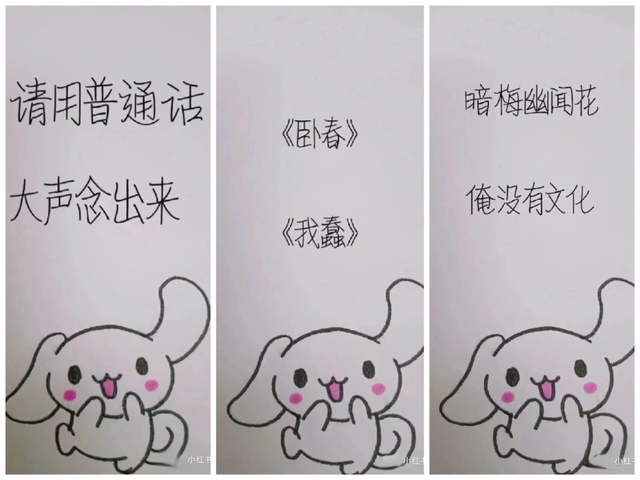 请用普通话
大声念出来
小红书
《卧春》
《我蠢》
小红书
暗梅幽闻花
俺没有文化
小红书